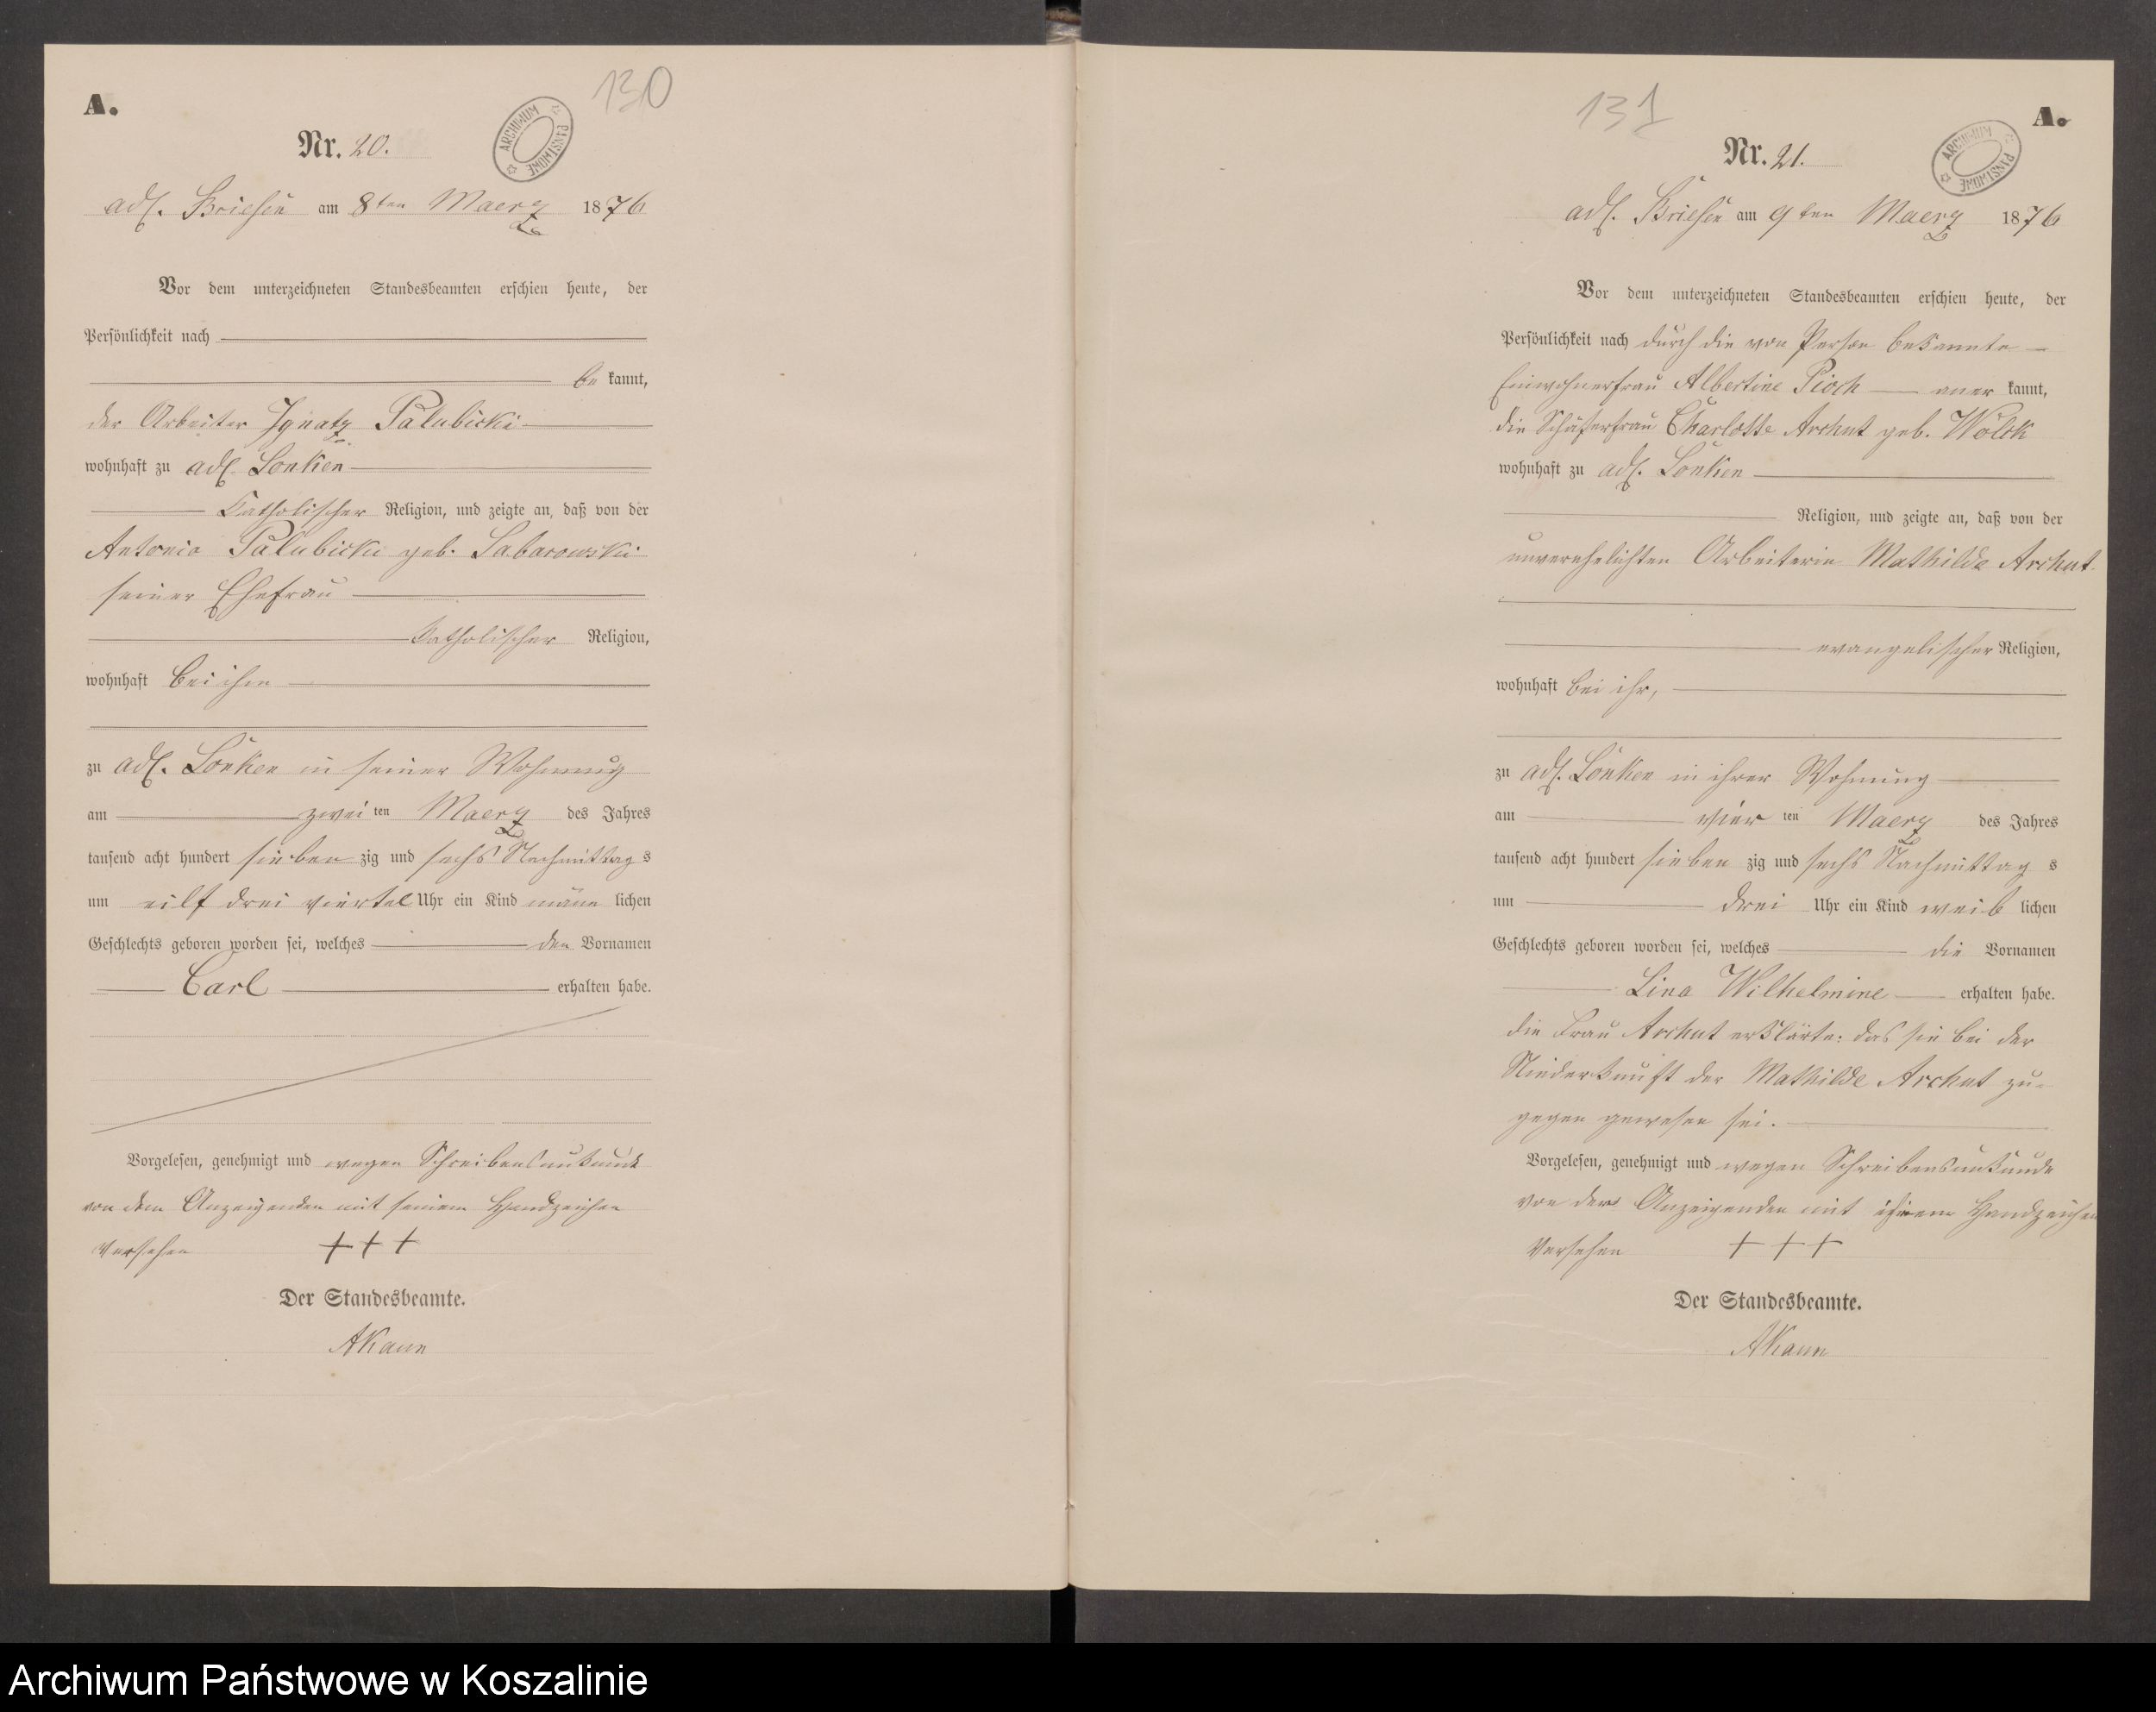 130
A.
Nr. 20.
ARCHIWUM PAŃSTWOWE
adl. Briesen am 8ten Maerz 1876
Vor dem unterzeichneten Standesbeamten erschien heute, der
Persönlichkeit nach
be kannt,
der Arbeiter Ignatz Palubicki
wohnhaft zu adl. Lonken
Katholischer Religion, und zeigte an, daß von der
Antonia Palubicki geb.
seiner Ehefrau
Katholischer Religion,
wohnhaft bei ihm
zu adl. Lonken in seiner Wohnung
am zwei ten Maerz des Jahres
tausend acht hundert sieben zig und sechs Nachmittag s
um eilf drei viertel Uhr ein Kind männ lichen
Geschlechts geboren worden sei, welches den Vornamen
Carl erhalten habe.
Vorgelesen, genehmigt und wegen Schreibensunkunde
von dem Anzeigenden mit seinem Handzeichen
versehen +++
Der Standesbeamte.
AKaun
131
A.
Nr. 21.
ARCHIWUM PAŃSTWOWE
adl. Briesen am 9ten Maerz 1876
Vor dem unterzeichneten Standesbeamten erschien heute, der
Persönlichkeit nach durch die von Person bekannte
Einwohnerfrau Albertine Pioch aner kannt,
die Schäferfrau Charlotte Archut geb. Wolck
wohnhaft zu adl. Lonken
Religion, und zeigte an, daß von der
unverehelichten Arbeiterin Mathilde Archut
evangelischer Religion,
wohnhaft bei ihr,
zu adl. Lonken in ihrer Wohnung
am vier ten Maerz des Jahres
tausend acht hundert sieben zig und sechs Nachmittag s
um drei Uhr ein Kind weib lichen
Geschlechts geboren worden sei, welches die Vornamen
Lina Wilhelmine erhalten habe.
die Frau Archut erklärte: das sie bei der
Niederkunft der Mathilde Archut zu-
gegen gewesen sei.
Vorgelesen, genehmigt und wegen Schreibensunkunde
von der Anzeigenden mit ihrem Handzeichen
versehen +++
Der Standesbeamte.
AKaun
Archiwum Państwowe w Koszalinie